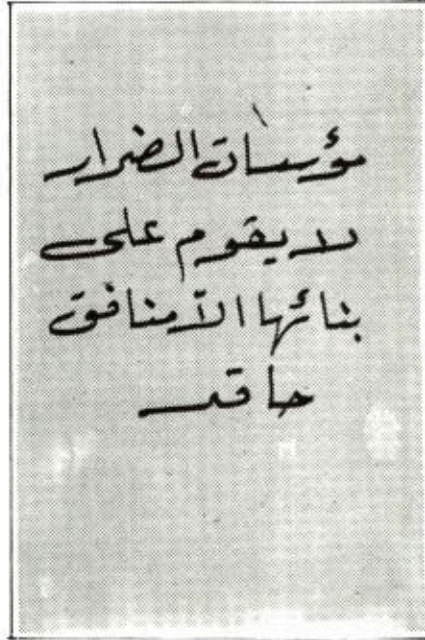 مؤسسات الضرار
لا يقوم على
بنائها الا منافق
حاقد